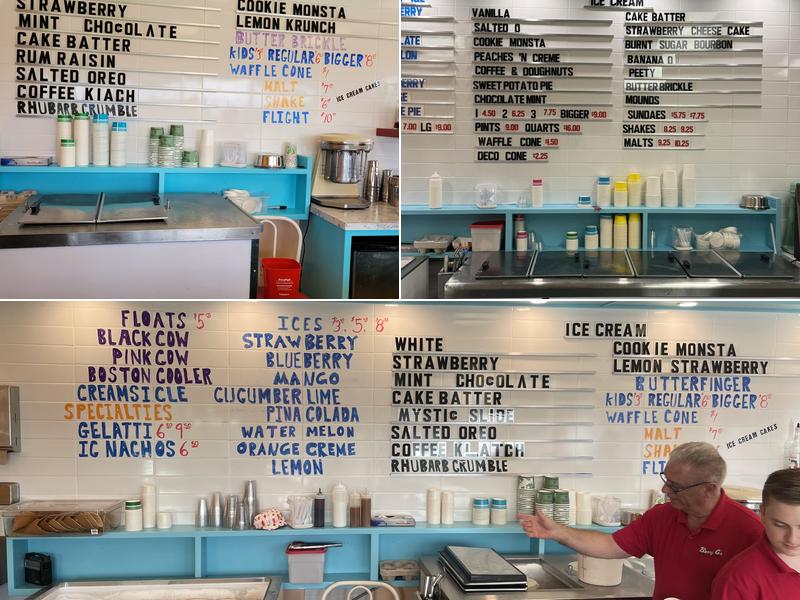 STRAWBERRY
MINT CHOCOLATE
CAKE BATTER
RUM RAISIN
SALTED OREO
COFFEE KLACH
RHUBARB CRUMBLE
COOKIE MONSTA
LEMON KRUNCH
BUTTER BRICKLE
KIDS 3 REGULAR 6 BIGGER 8
WAFFLE CONE $1
MALT $7
SHAKE $6
FLIGHT $10
ICE CREAM CAKES
ICE CREAM
VANILLA
SALTED O
COOKIE MONSTA
PEACHES 'N CREME
COFFEE & DOUGHNUTS
SWEET POTATO PIE
CHOCOLATE MINT
1 4.50 2 6.25 3 7.75 BIGGER $9.00
PINTS 9.00 QUARTS $16.00
WAFFLE CONE $1.50
DECO CONE $2.25
CAKE BATTER
STRAWBERRY CHEESE CAKE
BURNT SUGAR BOURBON
BANANA O
PEETY
BUTTER BRICKLE
MOUNDS
SUNDAES $5.75 $7.75
SHAKES 8.25 9.25
MALTS 9.25 10.25
ERRY
ATE
ERRY
E PIE
7.00 LG $9.00
FLOATS $5
BLACK COW
PINK COW
BOSTON COOLER
CREAMSICLE
SPECIALTIES
GELATTI 6 9
IC NACHOS 6
ICES $3, $5, $8
STRAWBERRY
BLUEBERRY
MANGO
CUCUMBER LIME
PINA COLADA
WATER MELON
ORANGE CREME
LEMON
WHITE
STRAWBERRY
MINT CHOCOLATE
CAKE BATTER
MYSTIC SLIDE
SALTED OREO
COFFEE KLATCH
RHUBARB CRUMBLE
ICE CREAM
COOK IE MONSTA
LEMON STRAWBERRY
BUTTERFINGER
KIDS 3 REGULAR 6 BIGGER 8
WAFFLE CONE $1
MALT
SHA
FLI
ICE CREAM CAKES
Berry G's